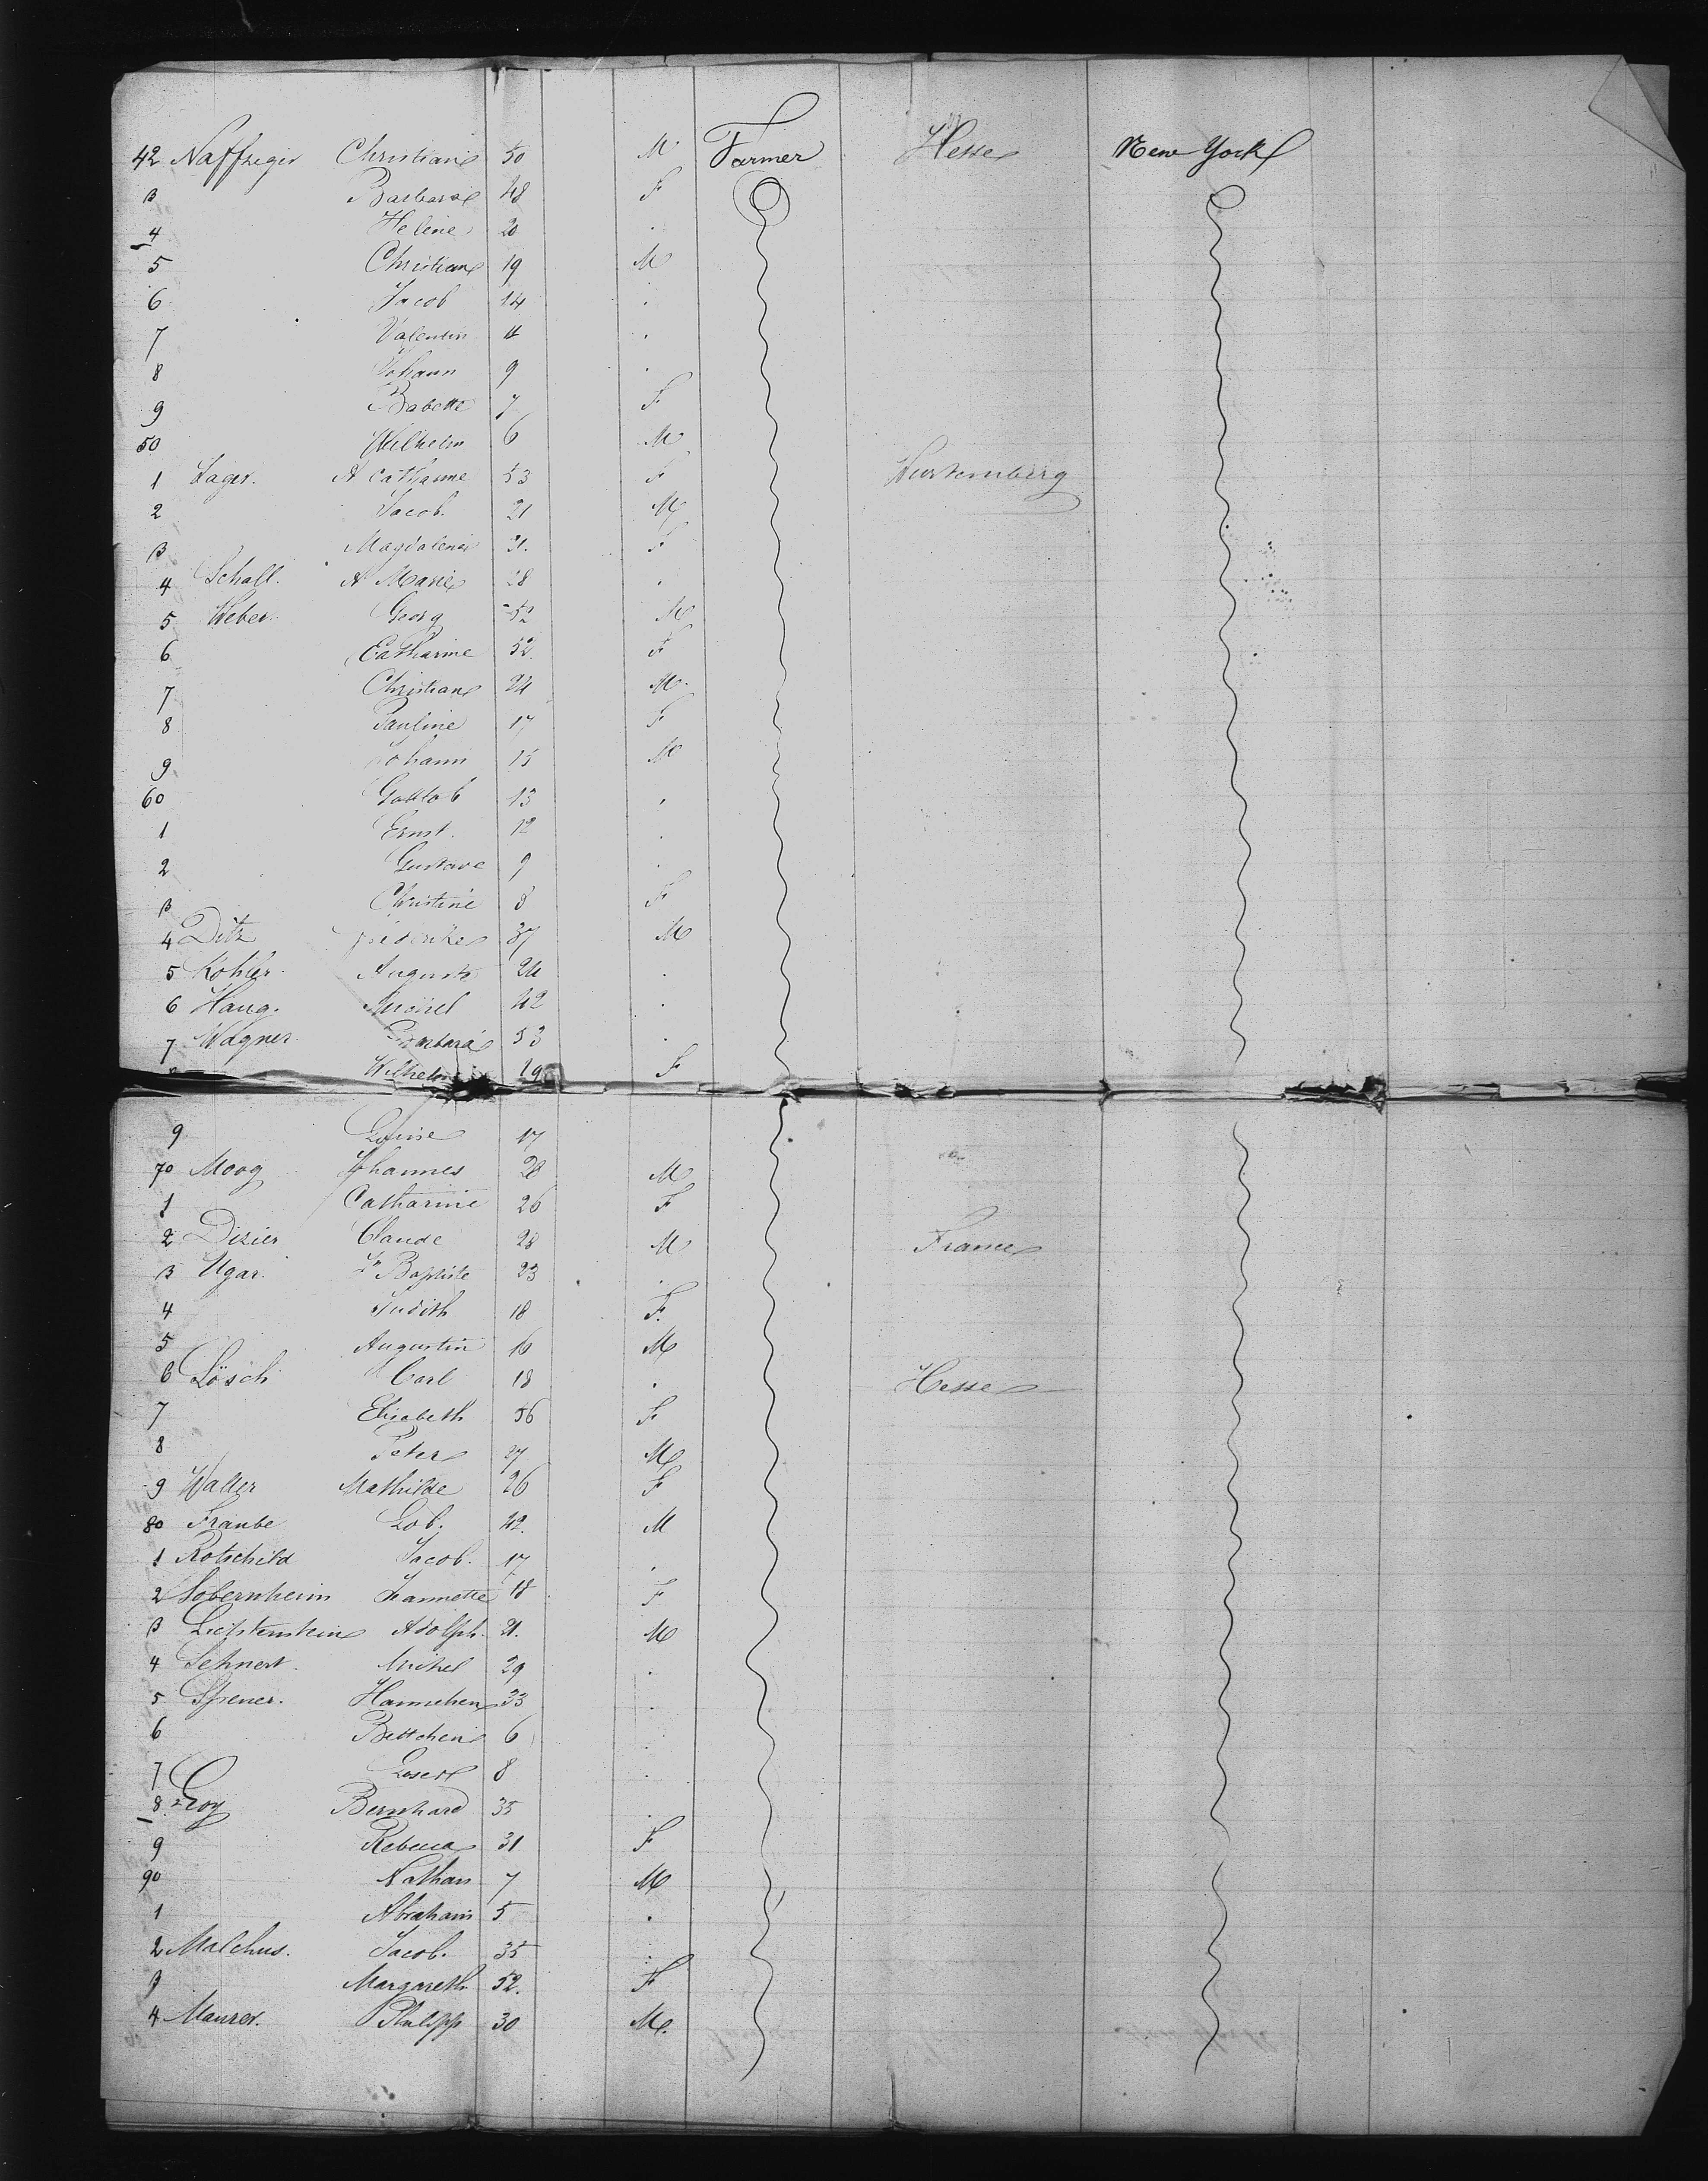 42 Naffziger Christian 50 M Farmer Hesse New York
3 Barbara 48 F
4 Helene 20 .
5 Christian 19 M
6 Jacob 14 .
7 Valentin 11 .
8 Johann 9 .
9 Babette 7 F
50 Wilhelm 6 M
1 Lager. A Catharine 53 F Wurtemberg
2 Jacob. 21 M
3 Magdalena 21. F
4 Schall. A Marie 28 .
5 Weber. Georg 52 M
6 Catharine 52. F
7 Christian 24 M.
8 Pauline 17 F
9 Johann 15 M
60 Gottlob 13 .
1 Ernst. 12 .
2 Gustave 9 .
3 Christine 8 F
4 Ditz 37 M
5 Kohler. August 24 .
6 Haug. Michel 42 .
7 Wagner. Barbara 53 .
Wilhelm 19 F
9 Louise 17
70 Moog Johannes 28 M
1 Catharine 26 F
2 Dizier Claude 28 M France
3 Ugar. Jn Baptiste 23 .
4 Judith 18 F.
5 Augustin 16 M
6 Lösch Carl 18 . Hesse
7 Elisabeth 56 F
8 Peter 27 M
9 Walter Mathilde 26 F
80 Fraube Lob. 42. M
1 Rotschild Jacob. 17 .
2 Sobernheim Jeannette 18 F
3 Lichtenstein Adolph. 21. M
4 Sehnert. Michel 29 .
5 Spener. Hannchen 33 .
6 Bettchen 6 .
7 Leser 8 .
8 Loy Bernhard 35 .
9 Rebecca 31 F
90 Nathan 7 M
1 Abraham 5 .
2 Malchus. Jacob. 35 .
3 Margareth 52. F
4 Maurer. Philipp 30 M.